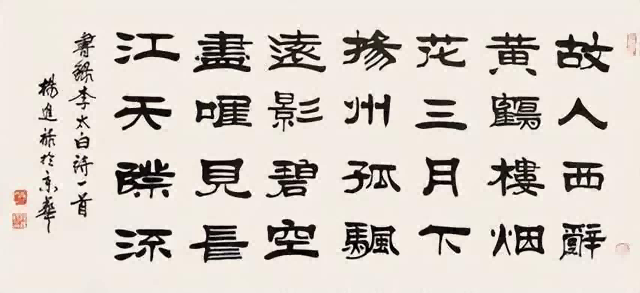 故人西辭
黃鶴樓烟
花三月下
揚州孤颿
遠影碧空
盡唯見長
江天際流
書録李太白詩一首
楊進禄於京華